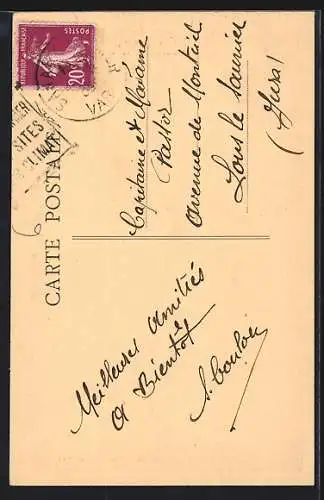 CARTE POSTALE
REPUBLIQUE FRANÇAISE
POSTES
20
VAR
SITES
CLIMAT
Capitaine et Madame
Pastor
Avenue de Montciel
Lons le Saunier
(Jura)
Meilleures amitiés
a Bientôt